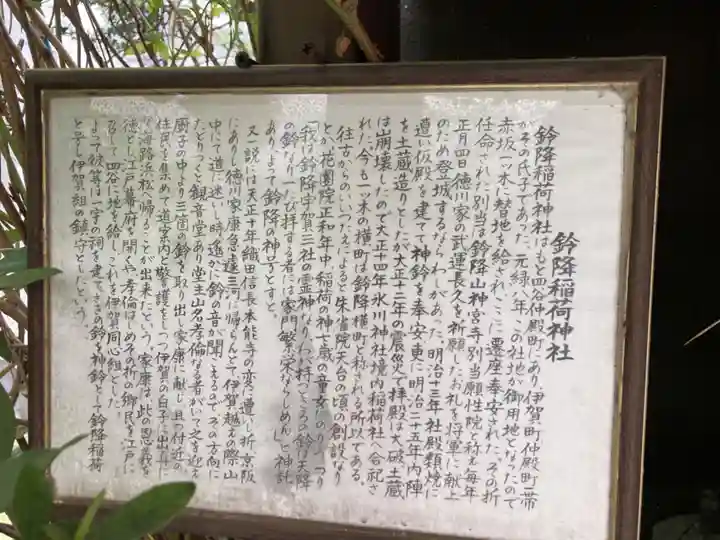 鈴降稲荷神社
鈴降稲荷神社はもと四谷仲殿町にあり、伊賀町仲殿町一帯
がその氏子であった。元緑八年、この社地が御用地となったので
赤坂一ッ木に替地を給され、ここに遷座奉安された。その折
任命された別当は鈴降山神宮寺別当願性院と称え毎年
正月四日徳川家の武運長久を祈願したお札を将軍に献上
のため登城するならわしがあった。明治十三年社殿類焼に
遭い仮殿を建てて神鈴を奉安、更に明治二十五年内陣
を土蔵造りとしたが大正十二年の震災で拝殿は大破土蔵
は崩壊したので大正十四年氷川神社境内稲荷社へ合祀さ
れた。今も一ッ木の横町は鈴降横町と称われる所以である。
往古からのいいつたえによると朱雀院天台の頃の創設なり
とか花園院正和年中稲荷の神七歳の童女にのり
「我は鈴降宇賀三社の霊神なり、わが持つところの鈴は天降
の鈴なり一び拝する者には家門繁栄なさしめん」と神託
あり、よって鈴降の神号とすと。
又一説には天正十年織田信長本能寺の変に遭い折京阪
にありし徳川家康急遽三河に帰らんとて伊賀越えの際山
中にて道に迷いし時遙かに鈴の音が聞こえるので、その方向に
たどりつくと観音堂あり堂主山名孝倫なる者がいて之を迎え
厨子の中より三箇の鈴を取り出し家康に献じ且つ付近の
住民を集めて道案内と警護をしつつ伊賀の白子に出舟に
て海路浜松へ帰ることが出来たという。家康は、此の恩義を
徳とし江戸幕府を開くや孝倫はじめその折の郷民を江戸に
召して四谷に地を給し、これを伊賀同心組とした。
よって彼等は一宇の祠を建てさきの鈴を神鈴として鈴降稲荷
と号し伊賀組の鎮守としたという。